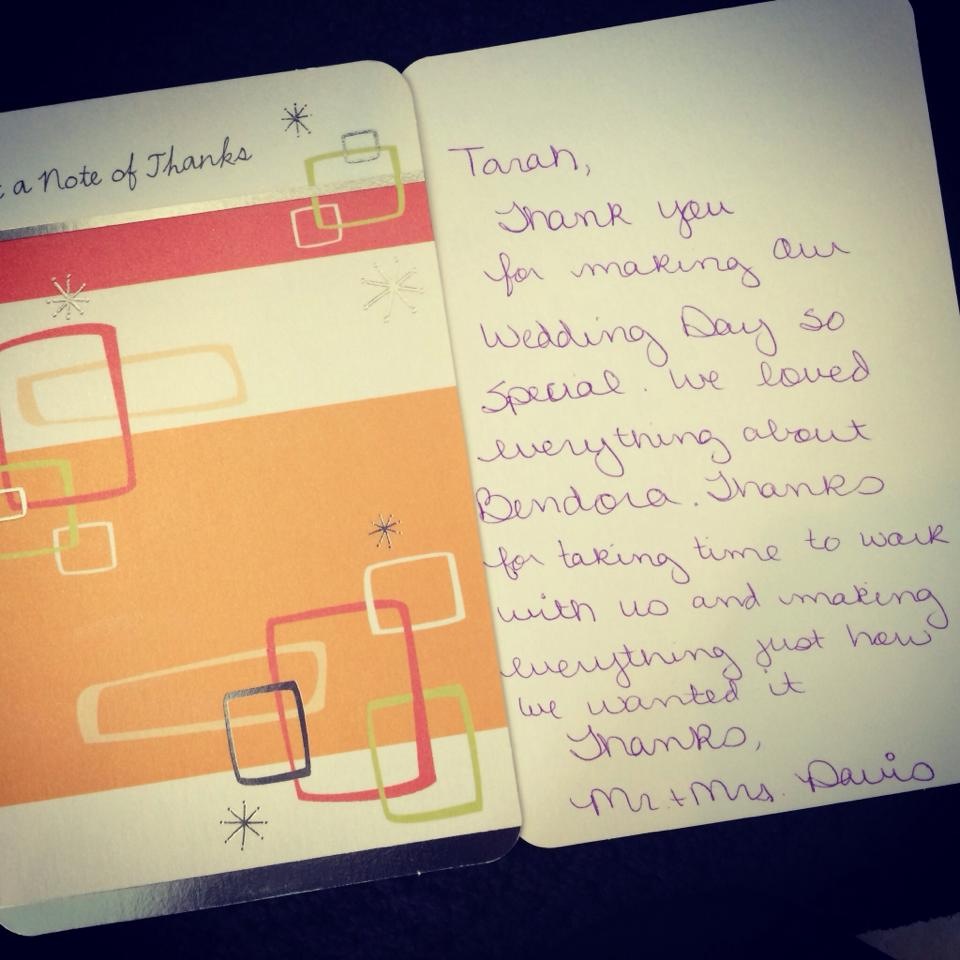 a Note of Thanks
Tarah,
Thank you
for making our
Wedding Day so
special. We loved
everything about
Bendora. Thanks
for taking time to work
with us and making
everything just how
we wanted it
Thanks,
Mr + Mrs. Davis